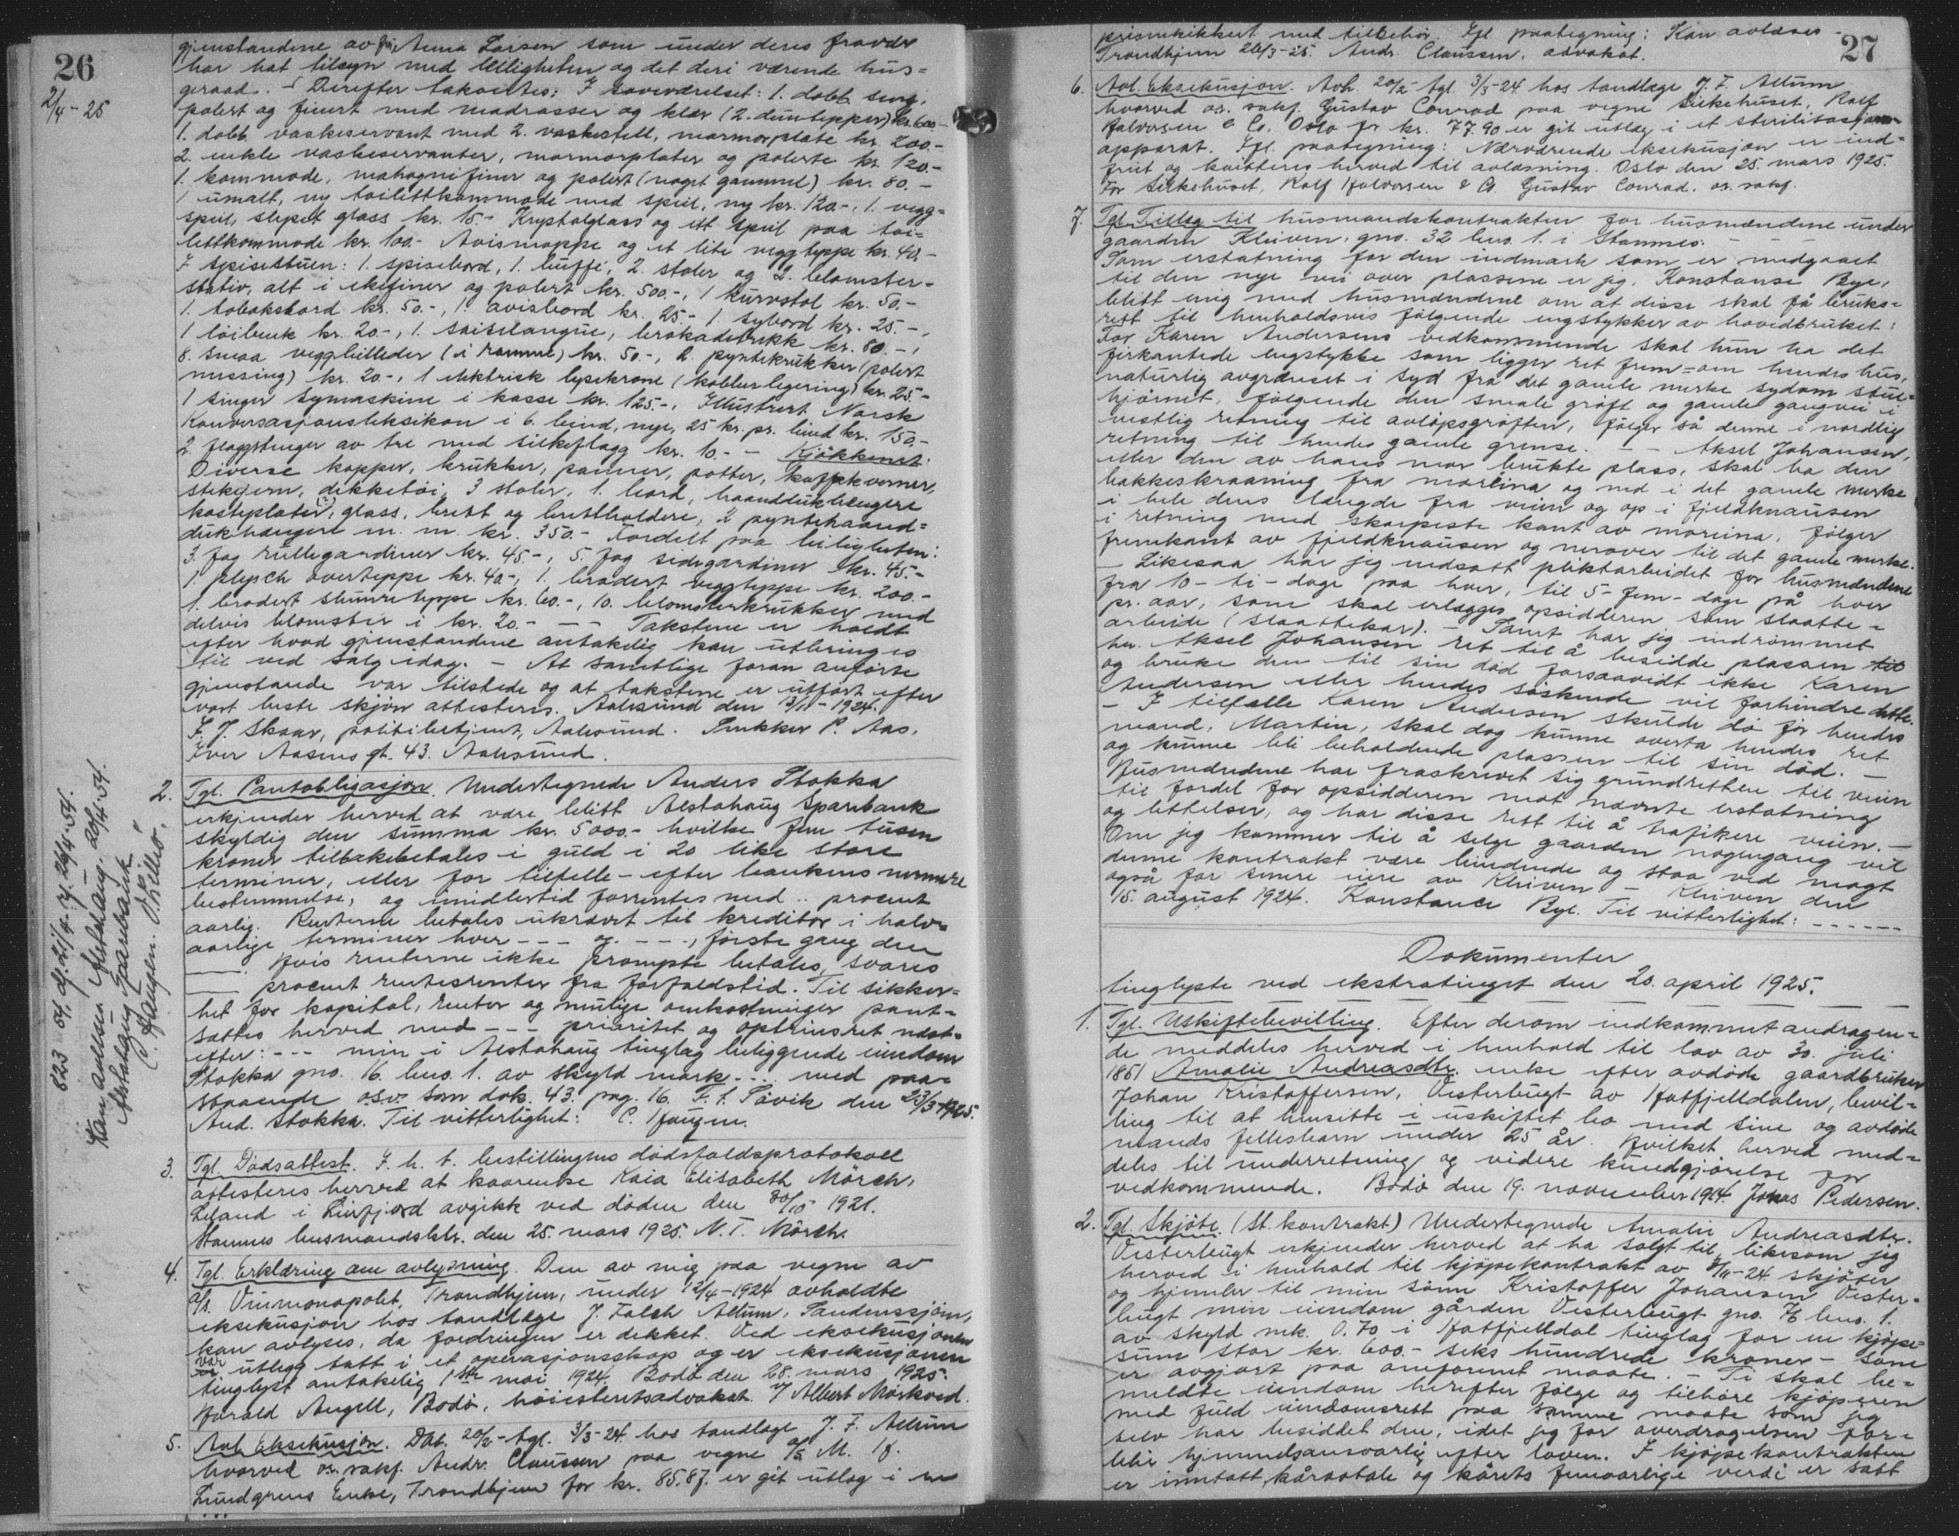 26
2/4-25
gjenstandene av frk Anna Larsen som under deres fravær
har hat tilsyn med leiligheten og det deri værende hus=
geraad. - Derefter takseertes: I soveværelset: 1. dobb. seng,
polert og finert med madrasser og klær (2. duntepper) kr. 600-
1. dobb. vaskeservant med 2. vaskestell, marmorplate kr. 200.-
2. enkle vaskeservanter, marmorplater og polerte kr. 120.-
1. kommode, mahognifiner og polert (noget gammel) kr. 80.-
1 umalt, ny toilettkommode med speil, ny kr. 120-, 1. vegg-
speil, slepet glass kr. 15- Krystalglass og ett speil paa toi=
lettkommode kr. 100.- Avismappe og et lite veggteppe kr. 40.-
I spisestuen: 1. spisebord, 1. buffé, 2. stoler og 2. blomster-
stativ, alt i ekefiner og polert kr. 500-, 1 kurvstol kr. 50,-
1. toboksbord kr. 50.-, 1. avisbord kr. 25.- 1 sybord kr. 25.-,
1 løibenk kr. 20-, 1. saiselangue, brokadetrukk kr. 80.-,
8. smaa veggbilleder (i ramme) kr. 50-, 2. pyntekrukker (polert
messing) kr. 20-, 1 elektrisk lysekrone (kobberlegering) kr. 25-
1 singer symaskine i kasse kr. 125-, Illustrert Norsk
Konversasjonsleksikon i 6. bind, nye, 25 kr. pr. bind kr. 150,-
2 flaggstenger av tre med silkeflagg kr. 10.- - Kjøkkenet:
Diverse kopper, krukker, panner, potter, kaffekverner,
stekejern, dekketøi, 3 stoler, 1. bord, haanddukhengere
kosteplater(?), glass, brett og brettholdere, 2 pyntehaand=
dukhengere m. m. kr. 350.- Fordelt paa leiligheten:
3. fag rullegardiner kr. 45-, 5. fag sidegardiner kr. 45.-
1. plysch overteppe kr. 40-, 1. brodert veggteppe kr. 200.-
1. brodert stuveteppe kr. 60.-, 10. blomsterkrukker med
delvis blomster i kr. 20.- - - - Takstene er holdt
efter hvad gjenstandene antakelig kan utbringes
til ved salg idag. - At samtlige foran anførte
gjenstande var tilstede og at takstene er utført efter
vort beste skjøn attesteres. Aalesund den 13/11-1924.
F. J. Skaar, politibetjent, Aalesund. Snekker P. Aas,
Iver Aasens gt. 43. Aalesund.
2. Tgl. Pantobligasjon. Undertegnede Anders Stokka
erkjender herved at være blitt Alstahaug Sparebank
skyldig den summa kr. 5000.- hvilke fem tusen
kroner tilbakebetales i guld i 20 like store
terminer, eller for tilfelle - efter bankens nærmere
bestemmelse, og imidlertid forrentes med .. procent
aarlig. Renterne betales ukrævet til kreditor i halv=
aarlige terminer hver --- og ---, første gang den
---. Hvis renterne ikke prompte betales, svares
--- procent rentesrenter fra forfaldstid. Til sikker=
het for kapital, renter og mulige omkostninger pant=
sættes herved med --- prioritet og optrinsret næst=
efter: --- min i Alstahaug tinglag beliggende eiendom
Stokka gno. 16. bno. 1. av skyld mark --- med paa=
staaende o.s.v. som dok. 43. pag. 16. F. t. Søvik den 23/3-1925.
And. Stokka. Til vitterlighet: C. Haugen.
823 54, d. 21/4. 54. 24/4-54.
Kan avlæses. Alstahaug. 20/4-54.
Alstahaug Sparebank
C. Haugen. O. Kellø.
3. Tgl. Dødsattest. I. h. t. bestillingens dødsfaldsprotokoll
attesteres herved at kaarenke Kaia Elisabeth Mørch,
Leland i Leirfjord avgikk ved døden den 30/10 1921.
Stamnes lensmandsktr. den 25. mars 1925. N. T. Mørch.
4. Tgl. Erklæring om avlysning. Den av mig paa vegne av
A/S. Vinmonopolet, Trondhjem, under 12/4-1924 avholdte
eksekusjon hos tandlæge J. Falch Altum, Sandnessjøen,
kan avlyses, da fordringen er dekket. Ved eksekusjonen
var utlegg tatt i et operasjonsskap og er eksekusjonen
tinglyst antakelig 1ste mai 1924. Bodø den 28. mars 1925.
Harald Angell, Bodø, høiesteretsadvokat. / Albert Mørkved.
5. Avl. Eksekusjon. Dat. 20/2- tgl. 3/3-24 hos tandlæge J. F. Altum
hvorved os. sakf. Andr. Claussen paa vegne A/S M. H.
Lundgrens Enke, Trondhjem for kr. 85.87. er git utlæg i en
27
prismekikkert med tilbehør. Ifl. paategning: Kan avlæses.
Trondhjem 26/3-25. Andr. Claussen, advokat.
6. Avl. Eksekusjon. Avh. 20/2- tgl. 3/3-24 hos tandlæge J. F. Altum
hvorved os. sakf. Gustav Conrad paa vegne Silkehuset, Rolf
Halvorsen & Co. Oslo for kr. 77.90 er git utlæg i et sterilisasjons-
apparat. Ifl. paategning: Nærværende eksekusjon er ind=
friet og kvitteres herved til avlæsning. Oslo den 25. mars 1925.
For Silkehuset, Rolf Halvorsen & Co. Gustav Conrad. os. sakf.
7. Tgl. Tillæg til husmandskontrakten for husmændene under
gaarden Kleiven, gno. 32 bno. 1. i Stamnes. -
Som erstatning for den indmark som er medgaaet
til den nye vei over plassene er jeg, Konstanse Bye,
blitt enig med husmændene om at disse skal få bruks=
rett til henholdsvis følgende engstykker av hovedbruket:
For Karen Andersens vedkommende skal hun ha det
firkantede engstykke som ligger ret frem=om hendes hus,
naturlig avgrænset i syd fra det gamle merke sydom stue=
hjørnet, følgende den smale grøft og gamle gangvei i
vestlig retning til avløpsgrøften, følger så denne i nordlig
retning til hendes gamle grense. - - Aksel Johansen,
eller den av hans mor brukte plass, skal ha den
bakkeskraaning fra moreina og ned i det gamle merke
i hele dens længde fra veien og op i fjeldknausen
i retning med skarpeste kant av moreina, følger
fremkant av fjeldknausen og nerover til det gamle merke.
- Likesaa har jeg nedsatt pliktarbeidet for husmændene
fra 10 - ti - dage paa hver, til 5 - fem - dage på hver
pr. aar, som skal erlægges opsidderen som slaatte=
arbeide (slaattekar). - Samt har jeg indrømmet
hr. Aksel Johansen ret til å besidde plassen til
og bruke den til sin død forsaavidt ikke Karen
Andersen eller hendes søskende vil forhindre dette.
- I tilfælle Karen Andersen skulde dø før hendes
mand, Martin, skal dog kunne overta hendes ret
og kunne bli beholdende plassen til sin død. -
Husmændene har fraskrevet sig grundretten til veien
til fordel for opsidderen mot nævnte erstatning
og lettelser, og har disse rett til å trafikere veien. -
Om jeg kommer til å selge gaarden nogengang vil
denne kontrakt være bindende og staa ved magt
også for senere eiere av Kleiven - Kleiven den
15. august 1924. Konstance Bye. Til vitterlighet: ------
Dokumenter
tinglyste ved ekstratinget den 20. april 1925.
1. Tgl. Uskiftebevilling. Efter derom indkommet andragen=
de meddeles herved i henhold til lov av 30. juli
1851 Amalie Andreasdtr. enke efter avdøde gaardbruker
Johan Kristoffersen, Vesterbugt av Hatfjelldalen, bevil=
ling til at hensitte i uskiftet bo med sine og avdøde
mands fellesbarn under 25 år. Hvilket herved med=
deles til underretning og videre kundgjørelse for
vedkommende. Bodø den 19. november 1914. Johs Pedersen.
2. Tgl. Skjøte. (St. kontrakt) Undertegnede Amalie Andreasdtr.
Vesterbugt erkjender herved at ha solgt til, likesom jeg
herved i henhold til kjøpekontrakt av 8/11-24 skjøter
og hjemler til min sønn Kristoffer Johansen Vester=
bugt min eiendom gården Vesterbugt gno. 76 bno. 1.
av skyld mk. 0.70 i Hatfjelldal tinglag for en kjøpe=
sum stor kr. 600.- seks hundrede kroner - som
er avgjort paa omforenet maate. - Ti skal be=
meldte eiendom herefter følge og tilhøre kjøperen
med fuld eiendomsrett paa samme maate som jeg
selv har besiddet den, idet jeg for overdragelsen for=
blir hjemmelsansvarlig efter loven. I kjøpekontrakten
er inntatt kåravtale og kårets femaarlige verdi er satt